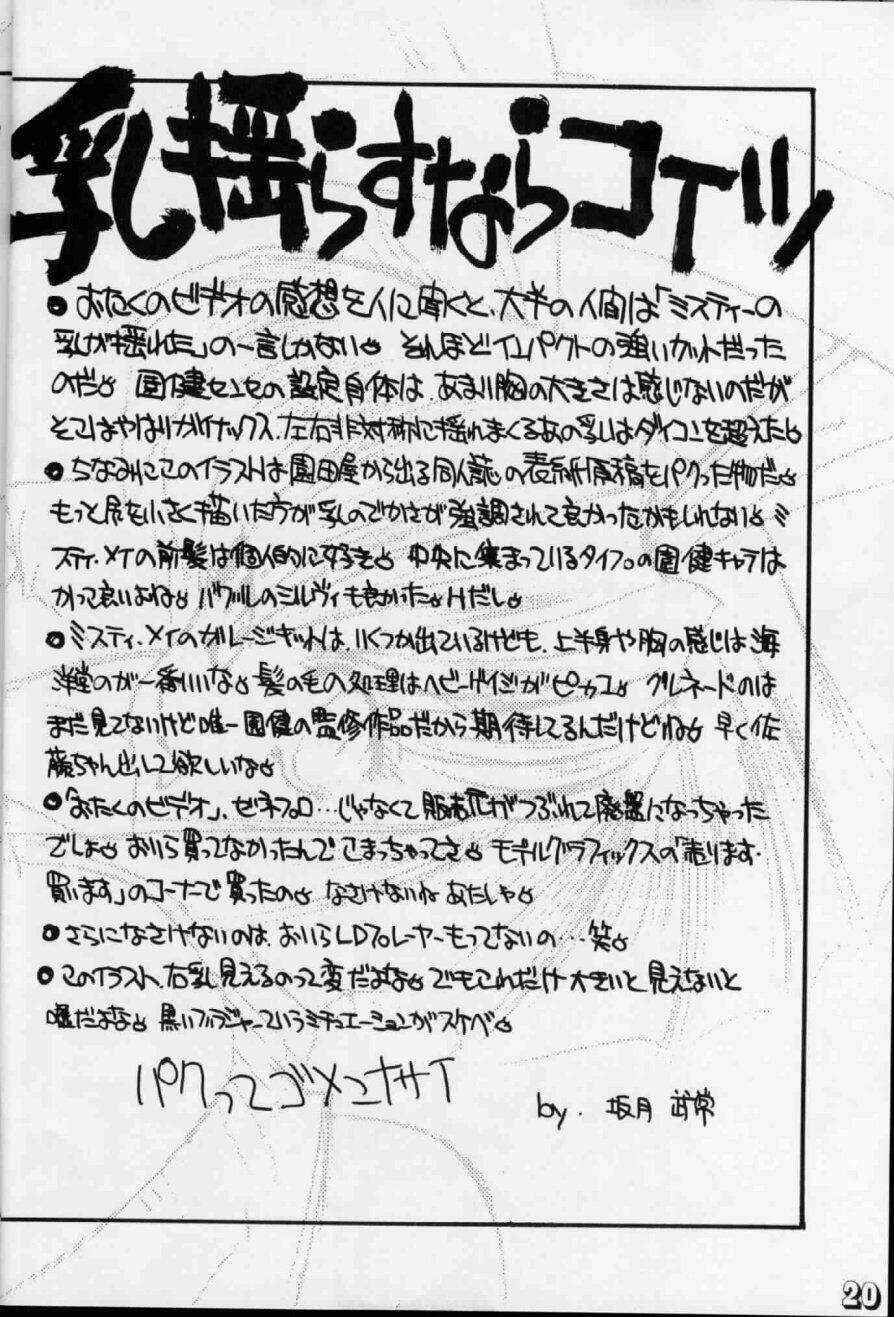 乳揺らすならコイツ
●おたくのビデオの感想を人に聞くと、大半の人間は「ミスティーの
乳が揺れた」の一言しかない。それほどインパクトの強いカットだった
のだ。園健センセの設定自体は、あまり胸の大きさは感じないのだが
そこはやはりガイナックス、左右非対称に揺れまくるあの乳はダイコンを超えた。
●ちなみにこのイラストは園田屋から出る同人誌の表紙原稿をパクった物だ。
もっと尻を小さく描いた方が乳のでかさが強調されて良かったかもしれない。ミ
スティ・メイの前髪は個人的に好き。中央に集まっているタイプの園健キャラは
かって良いよね。バウルのシルヴィも良かった。Hだし。
●ミスティ・メイのガレージキットは、いくつか出ているけども、上半身や胸の感じは海
洋堂のが一番いいな。髪の毛の処理はヘビーゲイジがピカコ。グルネードのは
まだ見てないけど唯一園健の監修作品だから期待してるんだけどね。早く佐
藤ちゃん出して欲しいな。
●「おたくのビデオ」、ゼネプロ…じゃなくて販売元がつぶれて廃盤になっちゃった
でしょ。おいら買ってなかったんでこまっちゃってさ。モデルグラフィックスの「売ります・
買います」のコーナーで買ったの。なさけないねあたしゃ。
●さらになさけないのは、おいらLDプレーヤーもってないの…笑。
●このイラスト、右乳見えるのって変だよな。でもこれだけ大きいと見えないと
嘘だよな。黒いブラジャーっていうシチュエーションがスケベ。
パクってゴメンナサイ
by. 坂月
20